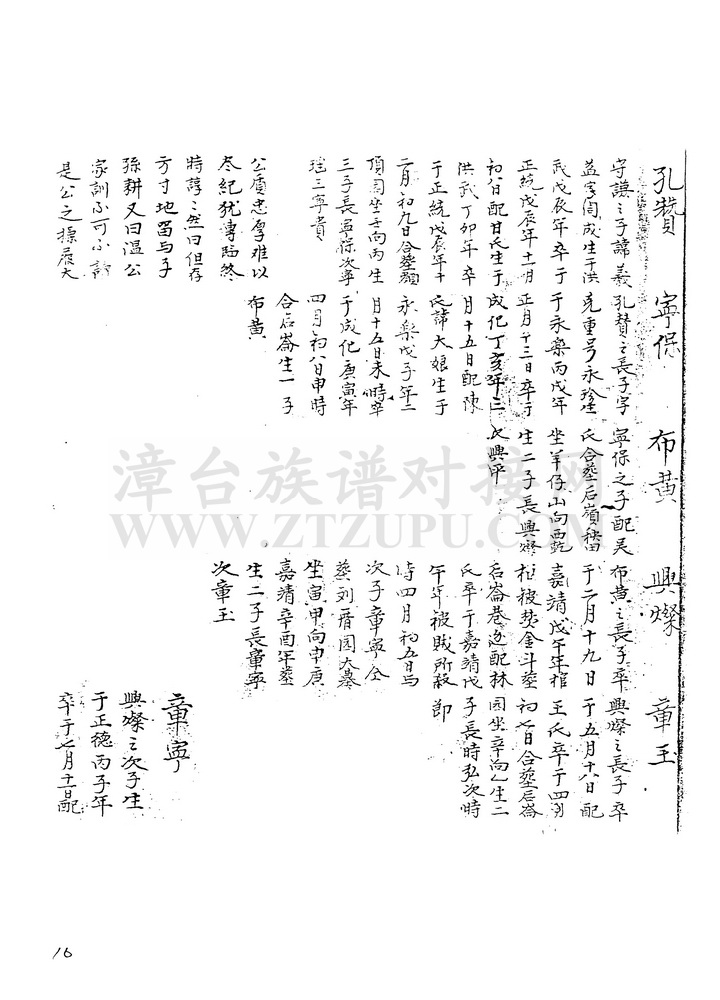 孔贊
守謙之子諱義
益字閏成生于洪
武戊辰年卒于
正統戊辰年十一月
初八日配甘氏生于
洪武丁卯年卒
于正統戊辰年十
二月初九日合塟
頂園坐壬向丙生
三子長寧保次寧
三寧貴
公質忠厚难以
尽紀犹傳臨終
時諄々然曰但存
方寸地留与子
孫耕又曰温公
家訓不可不
是公之操履大
寧保
孔贊之長子字
克重号永珍生
于永樂丙戌年
正月十三日卒于
成化丁亥年二
月十五日配陳
氏諱大娘生于
永樂戊子年二
月十五日未時卒
于成化庚寅年
四月初八日申時
合后崙生一子
布黄
布黄
寧保之子配吴
氏合塟后嶺秧田
坐羊仔山向西
生二子長興燦
次興平
興燦
布黄之長子卒
于二月十九日
嘉靖戊午年棺
柩被焚金斗塟
后崙巷边配林
氏卒于嘉靖戊
午年被賊所殺
時四月初五日与
次子章寧仝
塟列厝园大墓
坐寅甲向申庚
嘉靖辛酉年塟
生二子長章寧
次章玉
章玉
興燦之長子卒
于五月十八日配
王氏卒于四月
初七日合塟后崙
园坐辛向乙生二
子長時弘次時
節
章寧
興燦之次子生
于正德丙子年
卒于七月十一日配
漳台族谱对接网
WWW.ZTZUPU.COM
16